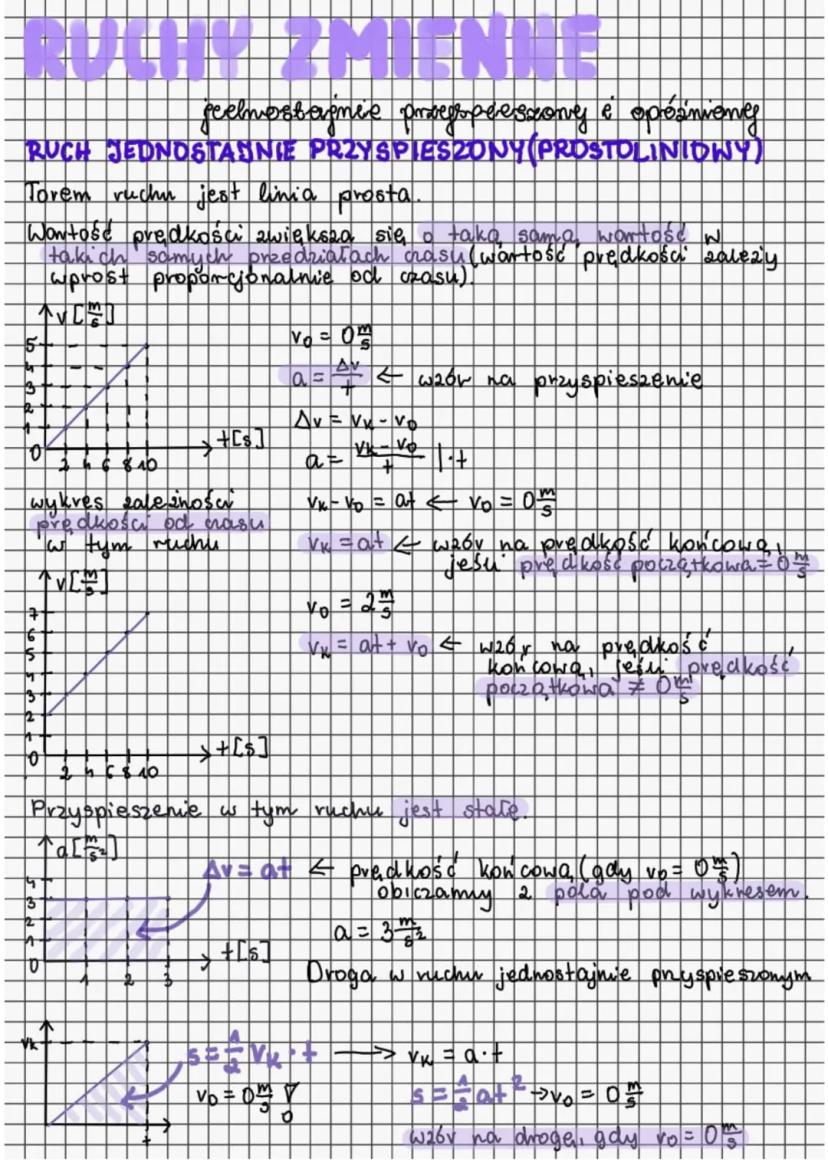 RUCHY ZMIENNE
jednostajnie przyspieszony i opóźniony
RUCH JEDNOSTAJNIE PRZYSPIESZONY(PROSTOLINIOWY)
Torem ruchu jest linia prosta.
Wartość prędkości zwiększa się o taką samą wartość w
takich samych przedziałach czasu(wartość prędkości zależy
wprost proporcjonalnie od czasu).
v [m/s]
5
4
3
2
1
0
2 4 6 8 10
t[s]
v₀ = 0 m/s
a = Δv/t ← wzór na przyspieszenie
Δv = vₖ - v₀
a = (vₖ - v₀)/t |·t
wykres zależności
prędkości od czasu
w tym ruchu
vₖ - v₀ = at ← v₀ = 0 m/s
vₖ = at ← wzór na prędkość końcową,
jeśli prędkość początkowa = 0 m/s
v[m/s]
7
6
5
4
3
2
1
0
2 4 6 8 10
t[s]
v₀ = 2 m/s
vₖ = at + v₀ ← wzór na prędkość
końcową, jeśli prędkość
początkowa ≠ 0 m/s
Przyspieszenie w tym ruchu jest stałe.
a[m/s²]
4
3
2
1
0
1 2 3
t[s]
Δv = at ← prędkość końcową(gdy v₀ = 0 m/s)
obliczamy z pola pod wykresem.
a = 3 m/s²
Droga w ruchu jednostajnie przyspieszonym
vₖ
t
s = 1/2 vₖ · t → vₖ = a·t
v₀ = 0 m/s !
s = 1/2 at² → v₀ = 0 m/s
wzór na drogę, gdy v₀ = 0 m/s